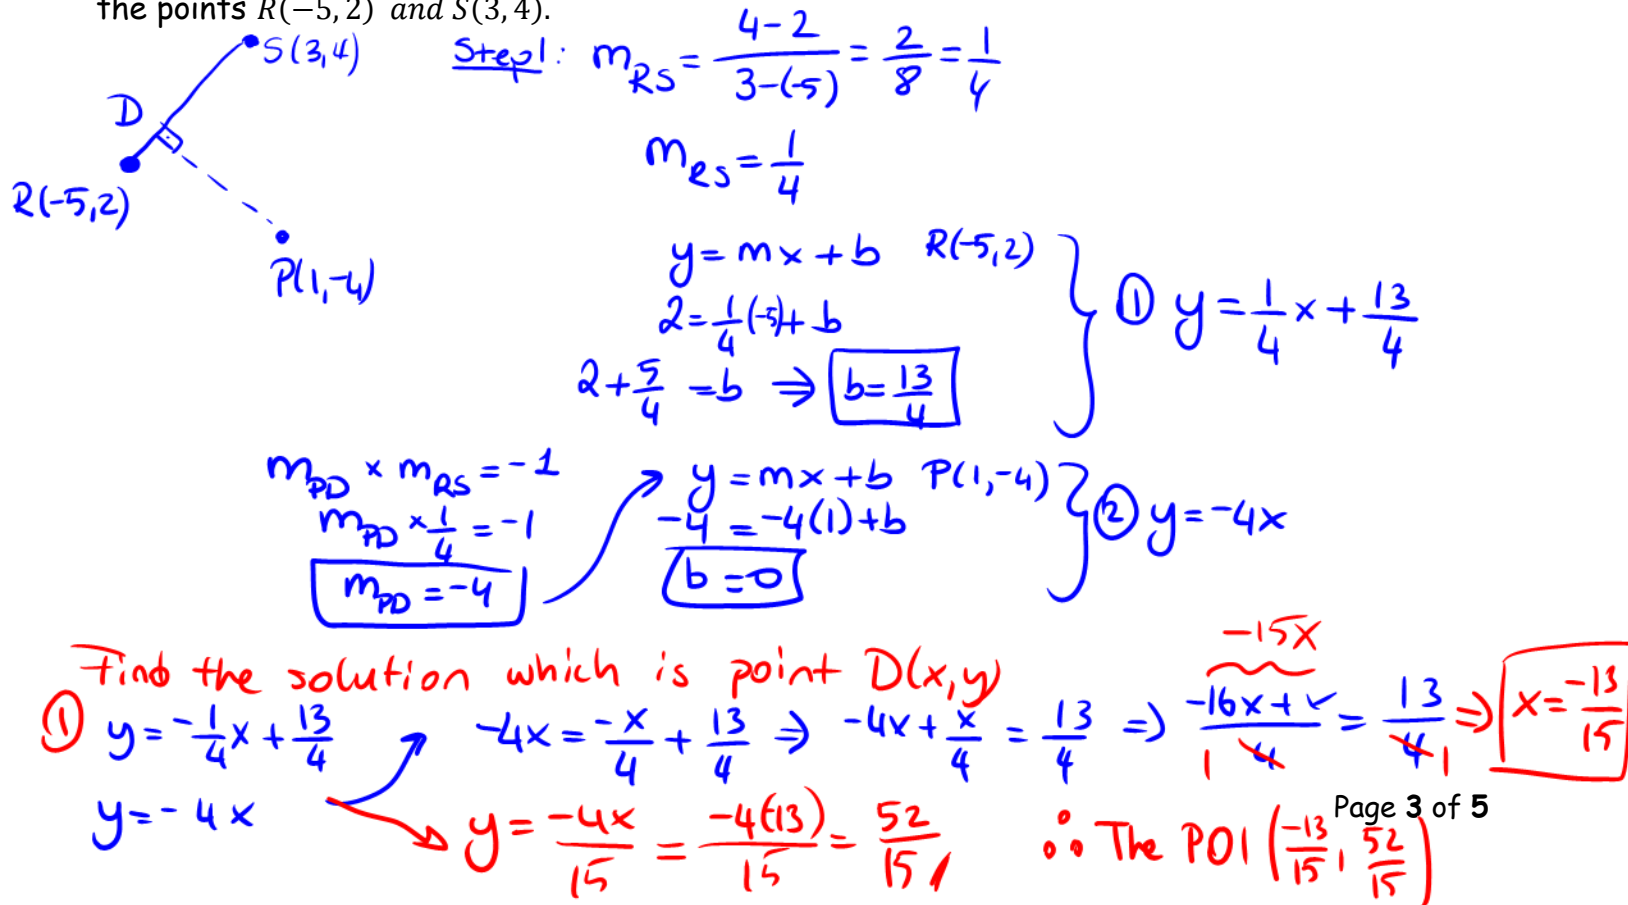 the points R(−5, 2) and S(3, 4).
S(3,4)
D
R(-5,2)
P(1,-4)
Step1: m_RS = (4-2)/(3-(-5)) = 2/8 = 1/4
m_RS = 1/4
y = mx + b R(-5,2)
2 = 1/4(-5) + b
2 + 5/4 = b ⇒ b = 13/4
① y = 1/4 x + 13/4
m_PD × m_RS = -1
m_PD × 1/4 = -1
m_PD = -4
y = mx + b P(1,-4)
-4 = -4(1) + b
b = 0
② y = -4x
Find the solution which is point D(x,y)
① y = -1/4 x + 13/4
y = -4x
-4x = -x/4 + 13/4 ⇒ -4x + x/4 = 13/4 ⇒ (-16x + x)/4 = 13/4 ⇒ x = -13/15
-15x
1 1
y = -4x/15 = -4(-13)/15 = 52/15
∴ The POI (-13/15, 52/15)
Page 3 of 5